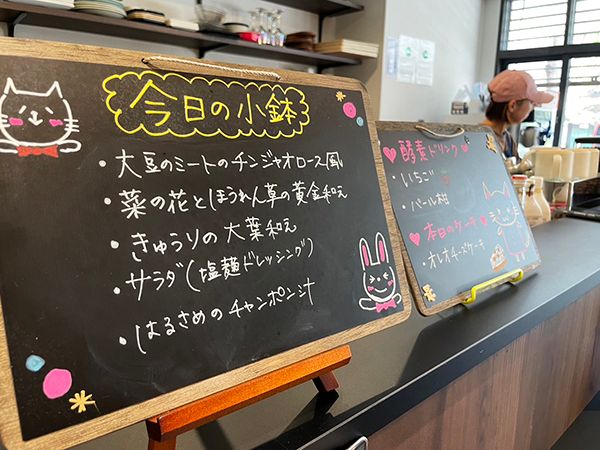 今日の小鉢
・大豆のミートのチンジャオロース風
・菜の花とほうれん草の黄金和え
・きゅうりの大葉和え
・サラダ(塩麹ドレッシング)
・はるさめのチャンポン汁
酵素ドリンク
・いちご
・パール柑
本日のケーキ
・オレオチーズケーキ